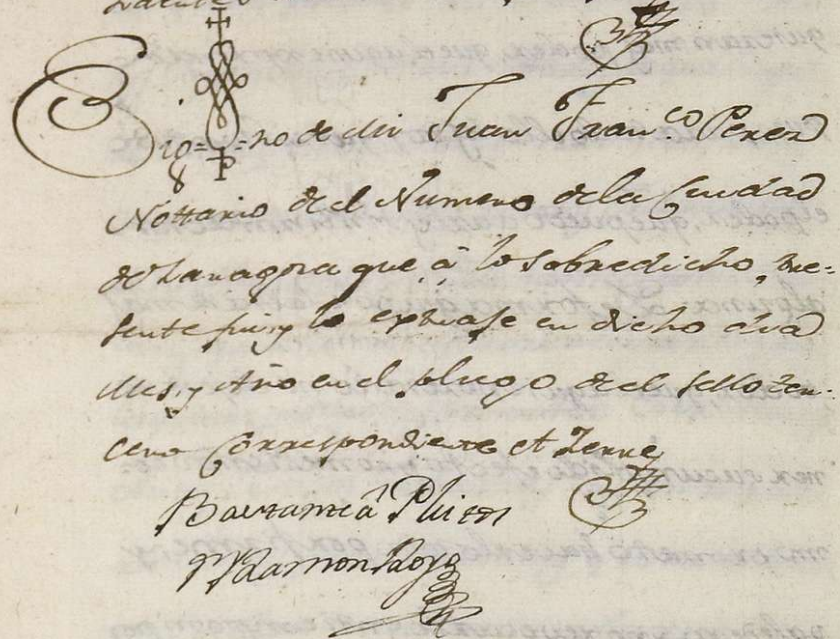 Sig=no de mi Juan Fran.co Perez
Nottario del Numero de la Ciudad
de Zaragoza que â lo sobredicho, pre=
sente fui, y lo extraje en dicho dia
Mes, y Año en el pliego del sello ter=
cero Correspondiente et Zerre
Ramon